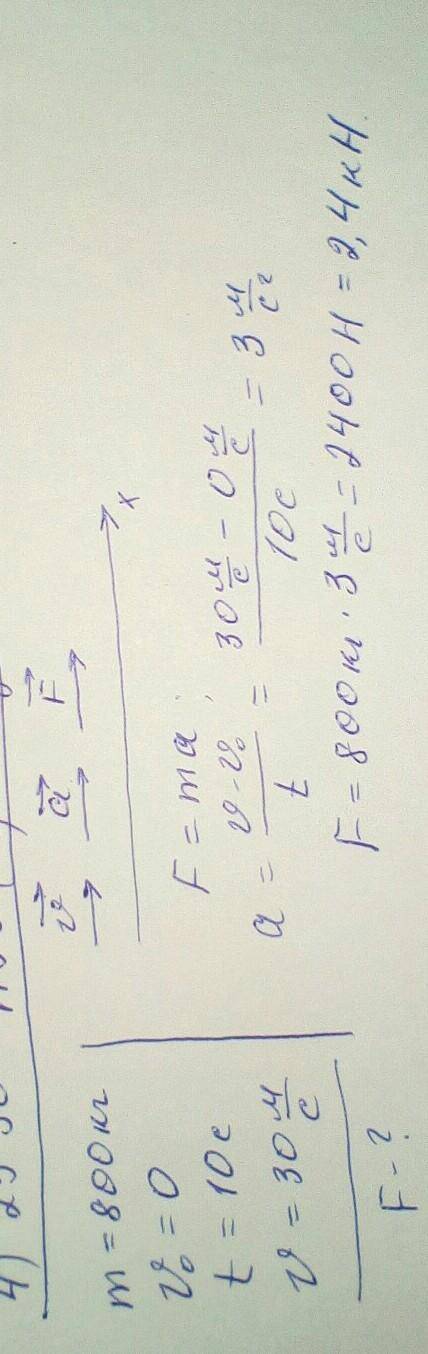 4)
v⃗ a⃗ F⃗
x
m = 800кг
v₀ = 0
t = 10с
v = 30 м/с
F - ?
F = ma;
a = (v - v₀)/t = (30 м/с - 0 м/с)/10с = 3 м/с²
F = 800кг · 3 м/с = 2400Н = 2,4кН.